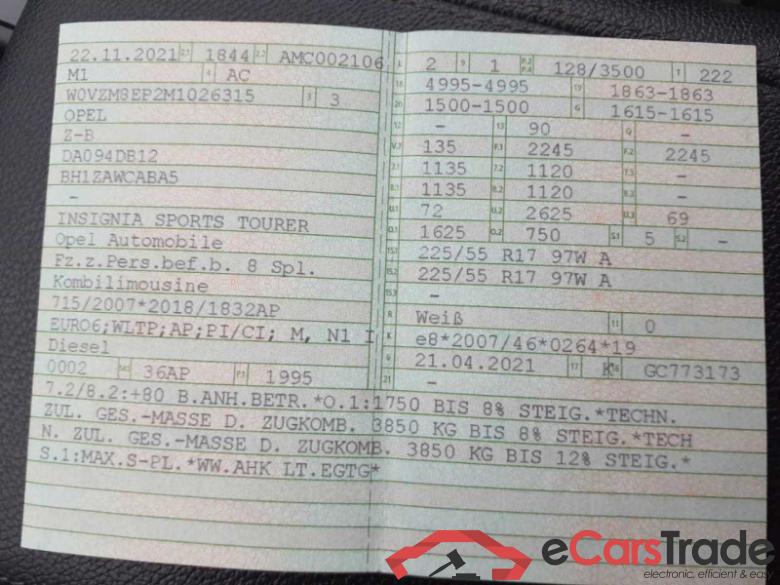 22.11.2021 2.1 1844 2.2 AMC002106
M1 4 AC
W0VZM8EP2M1026315 3 3
OPEL
Z-B
DA094DB12
BH1ZAWCABA5
-
INSIGNIA SPORTS TOURER
Opel Automobile
Fz.z.Pers.bef.b. 8 Spl.
Kombilimousine
715/2007*2018/1832AP
EURO6;WLTP;AP;PI/CI; M, N1 I
Diesel
0002 36AP P.1 1995
L 2 9 1 P.2 P.4 128/3500 T 222
18 4995-4995 19 1863-1863
20 1500-1500 G 1615-1615
12 - 13 90 Q -
V.7 135 F.1 2245 F.2 2245
7.1 1135 7.2 1120 7.3 -
8.1 1135 8.2 1120 8.3 -
U.1 72 U.2 2625 U.3 69
O.1 1625 O.2 750 S.1 5 S.2 -
15.1 225/55 R17 97W A
15.2 225/55 R17 97W A
15.3 -
R Weiß 11 0
K e8*2007/46*0264*19
6 21.04.2021 17 K 16 GC773173
21 -
7.2/8.2:+80 B.ANH.BETR.*O.1:1750 BIS 8% STEIG.*TECHN.
ZUL. GES.-MASSE D. ZUGKOMB. 3850 KG BIS 8% STEIG.*TECH
N. ZUL. GES.-MASSE D. ZUGKOMB. 3850 KG BIS 12% STEIG.*
S.1:MAX.S-PL.*WW.AHK LT.EGTG*
eCarsTrade
electronic, efficient & eas